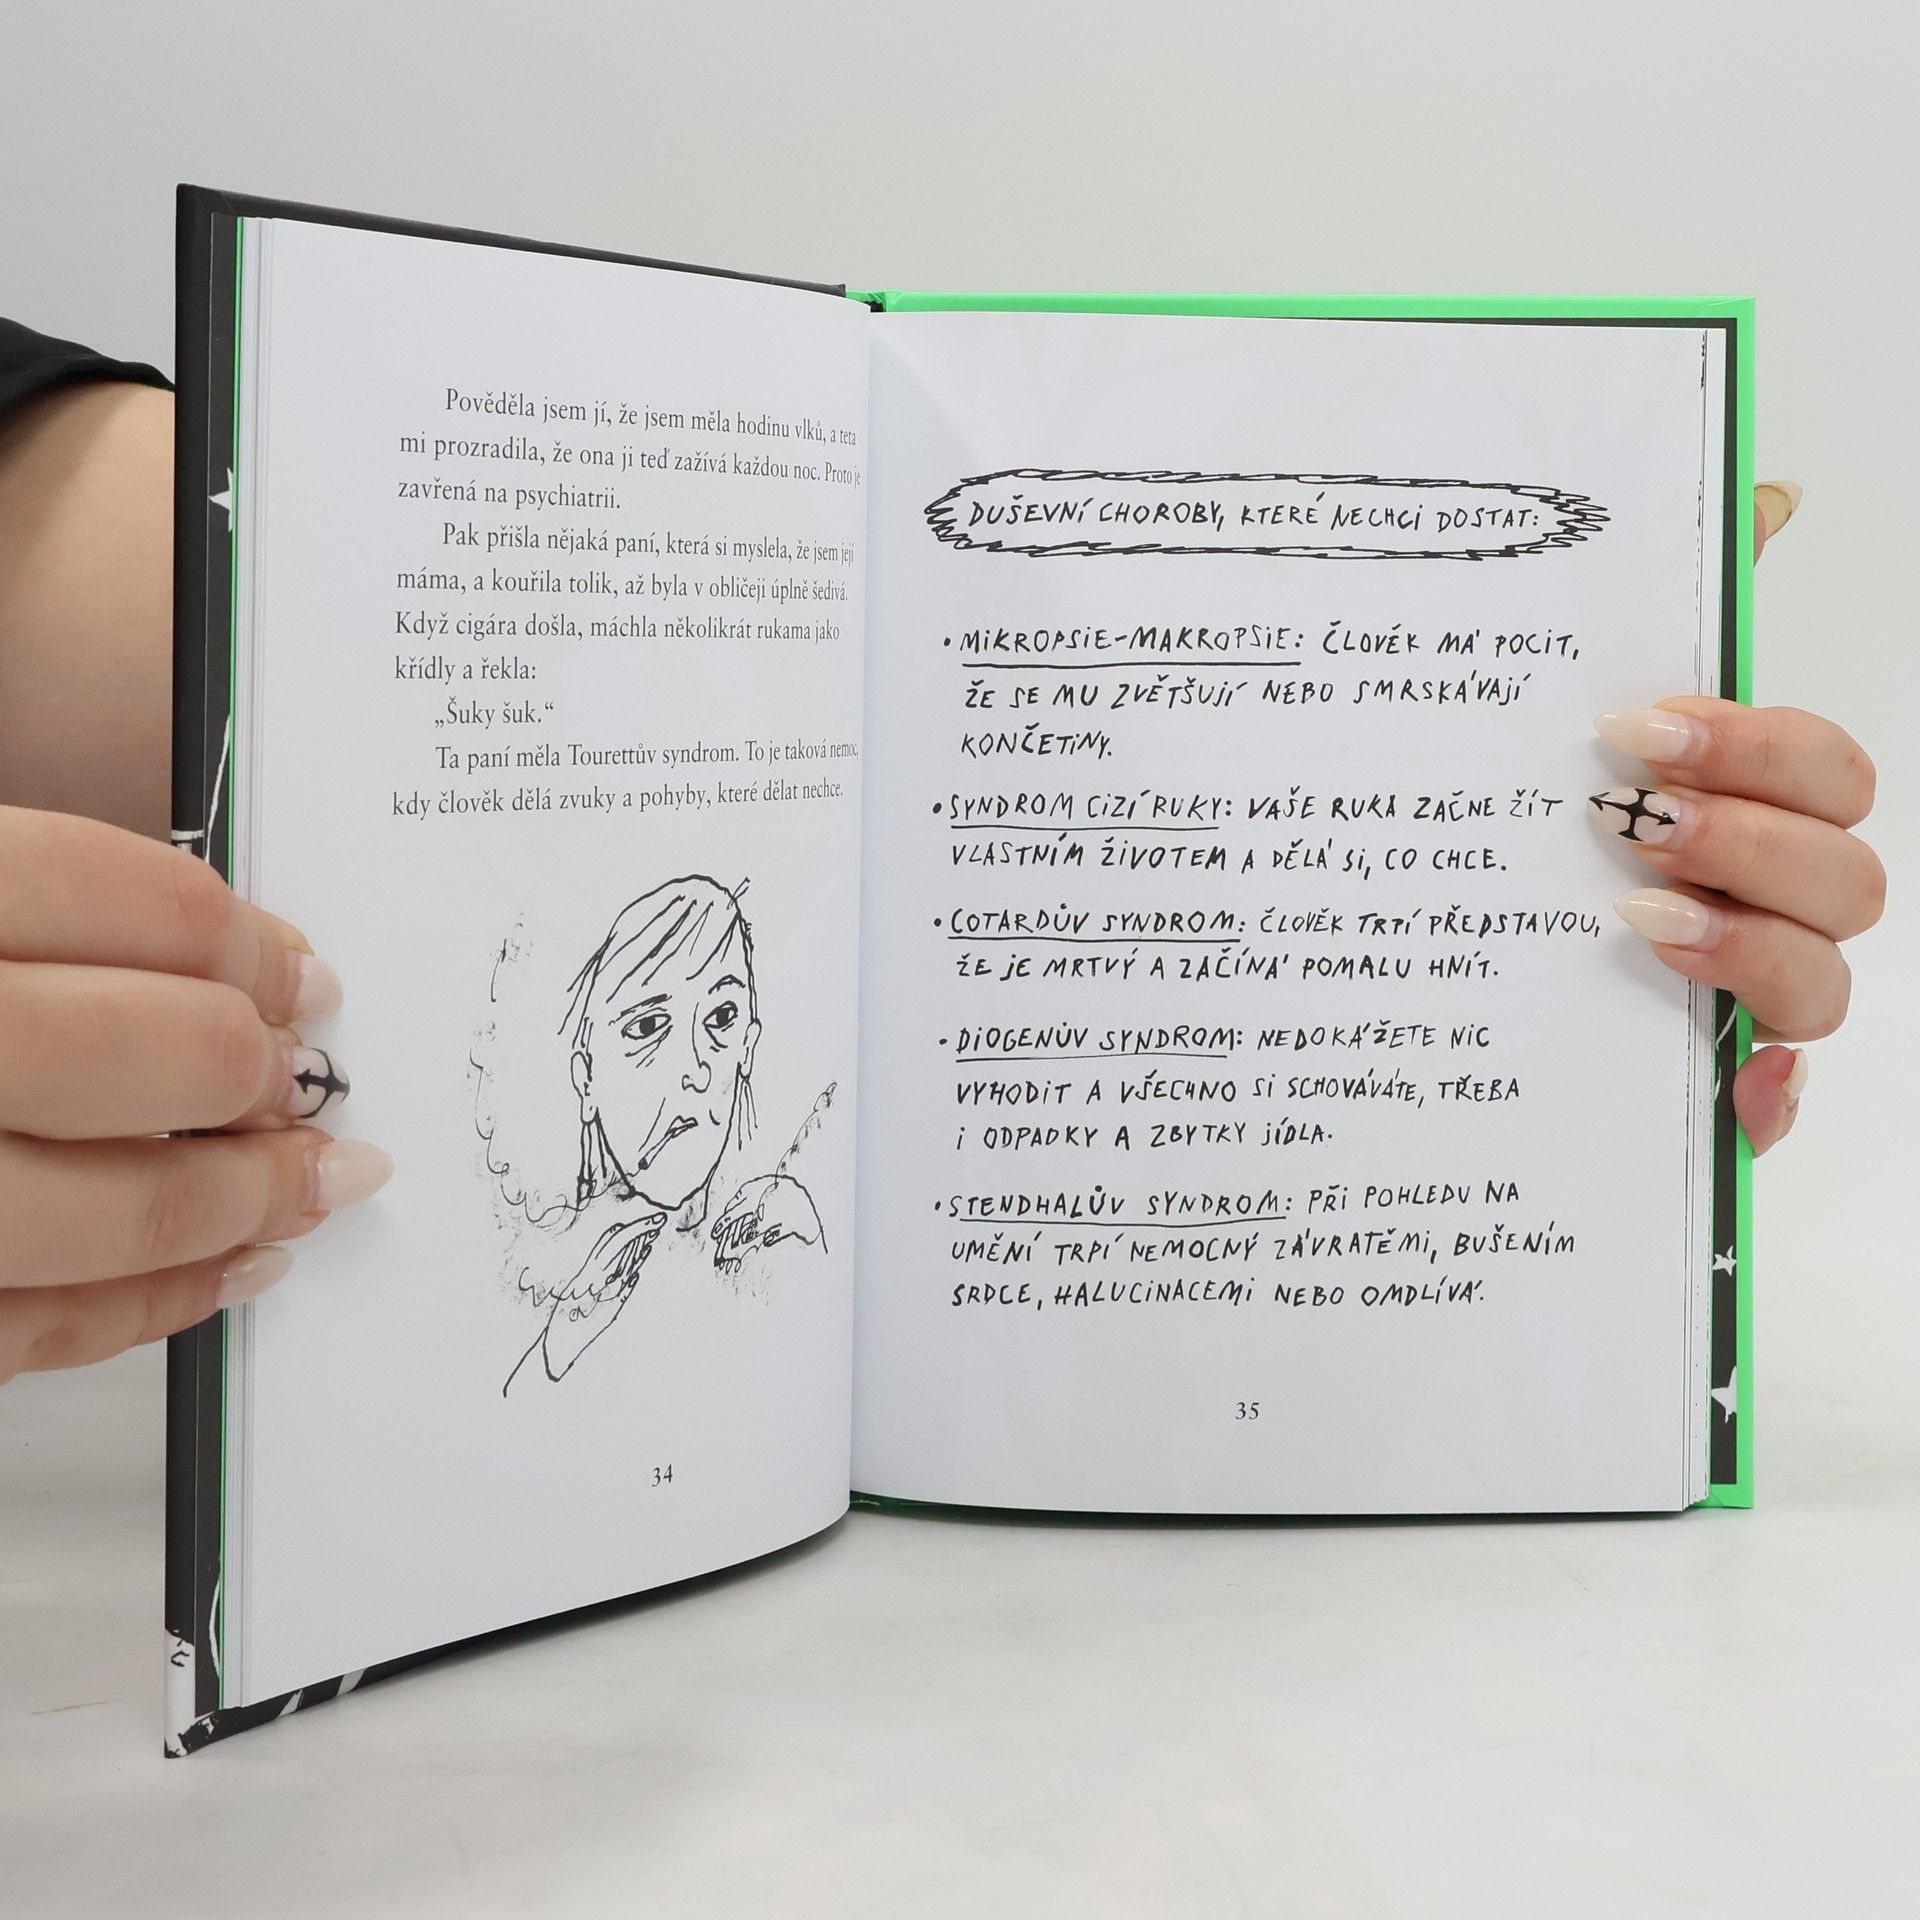 Pověděla jsem jí, že jsem měla hodinu vlků, a teta
mi prozradila, že ona ji teď zažívá každou noc. Proto je
zavřená na psychiatrii.
Pak přišla nějaká paní, která si myslela, že jsem její
máma, a kouřila tolik, až byla v obličeji úplně šedivá.
Když cigára došla, máchla několikrát rukama jako
křídly a řekla:
„Šuky šuk.“
Ta paní měla Tourettův syndrom. To je taková nemoc,
kdy člověk dělá zvuky a pohyby, které dělat nechce.
34
DUŠEVNÍ CHOROBY, KTERÉ NECHCI DOSTAT:
• MIKROPSIE-MAKROPSIE: ČLOVĚK MÁ POCIT,
ŽE SE MU ZVĚTŠUJÍ NEBO SMRSKÁVAJÍ
KONČETINY.
• SYNDROM CIZÍ RUKY: VAŠE RUKA ZAČNE ŽÍT
VLASTNÍM ŽIVOTEM A DĚLÁ SI, CO CHCE.
• COTARDŮV SYNDROM: ČLOVĚK TRPÍ PŘEDSTAVOU,
ŽE JE MRTVÝ A ZAČÍNÁ POMALU HNÍT.
• DIOGENŮV SYNDROM: NEDOKÁŽETE NIC
VYHODIT A VŠECHNO SI SCHOVÁVÁTE, TŘEBA
I ODPADKY A ZBYTKY JÍDLA.
• STENDHALŮV SYNDROM: PŘI POHLEDU NA
UMĚNÍ TRPÍ NEMOCNÝ ZÁVRATĚMI, BUŠENÍM
SRDCE, HALUCINACEMI NEBO OMDLÍVÁ.
35